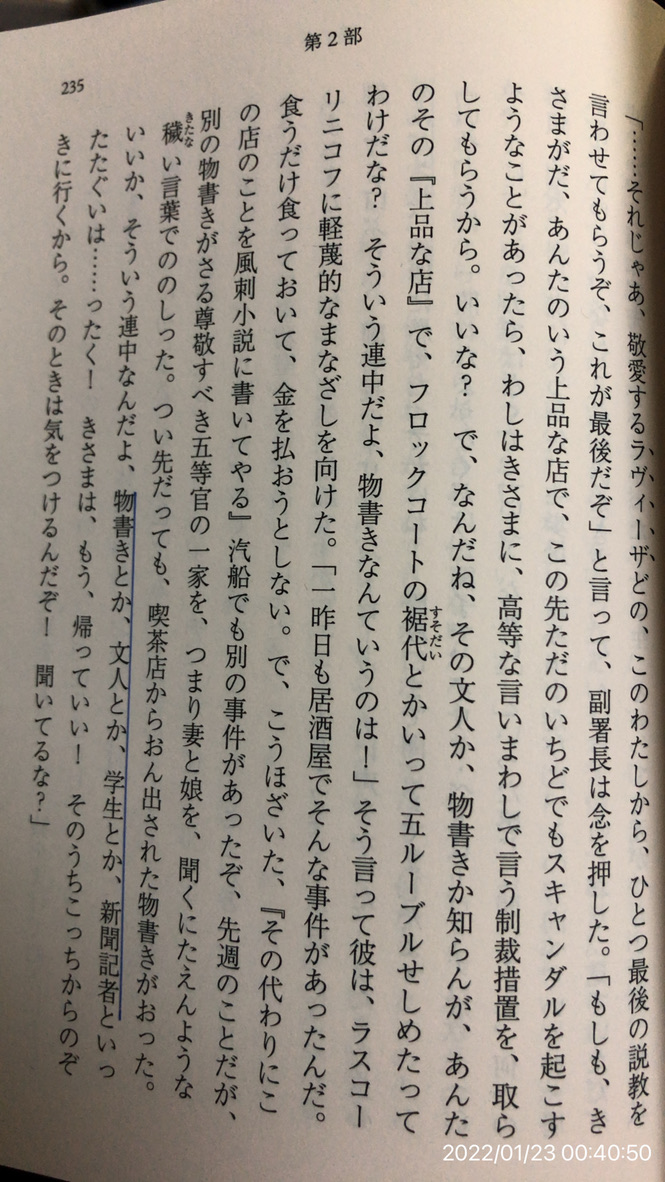 第2部
235
「……それじゃあ、敬愛するラヴィーザどの、このわたしから、ひとつ最後の説教を
言わせてもらうぞ、これが最後だぞ」と言って、副署長は念を押した。「もしも、き
さまがだ、あんたのいう上品な店で、この先ただのいちどでもスキャンダルを起こす
ようなことがあったら、わしはきさまに、高等な言いまわしで言う制裁措置を、取ら
してもらうから。いいな? で、なんだね、その文人か、物書きか知らんが、あんた
のその『上品な店』で、フロックコートの裾代とかいって五ルーブルせしめたって
すそだい
わけだな? そういう連中だよ、物書きなんていうのは!」そう言って彼は、ラスコー
リニコフに軽蔑的なまなざしを向けた。「一昨日も居酒屋でそんな事件があったんだ。
食うだけ食っておいて、金を払おうとしない。で、こうほざいた、『その代わりにこ
の店のことを風刺小説に書いてやる』汽船でも別の事件があったぞ、先週のことだが、
別の物書きがさる尊敬すべき五等官の一家を、つまり妻と娘を、聞くにたえんような
穢い言葉でののしった。つい先だっても、喫茶店からおん出された物書きがおった。
きたな
いいか、そういう連中なんだよ、物書きとか、文人とか、学生とか、新聞記者といっ
たたぐいは……ったく! きさまは、もう、帰っていい! そのうちこっちからのぞ
きに行くから。そのときは気をつけるんだぞ! 聞いてるな?」
2022/01/23 00:40:50